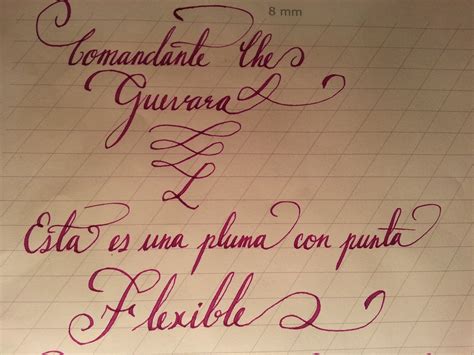 8 mm
Comandante Che
Guevara
Esta es una pluma con punta
Flexible